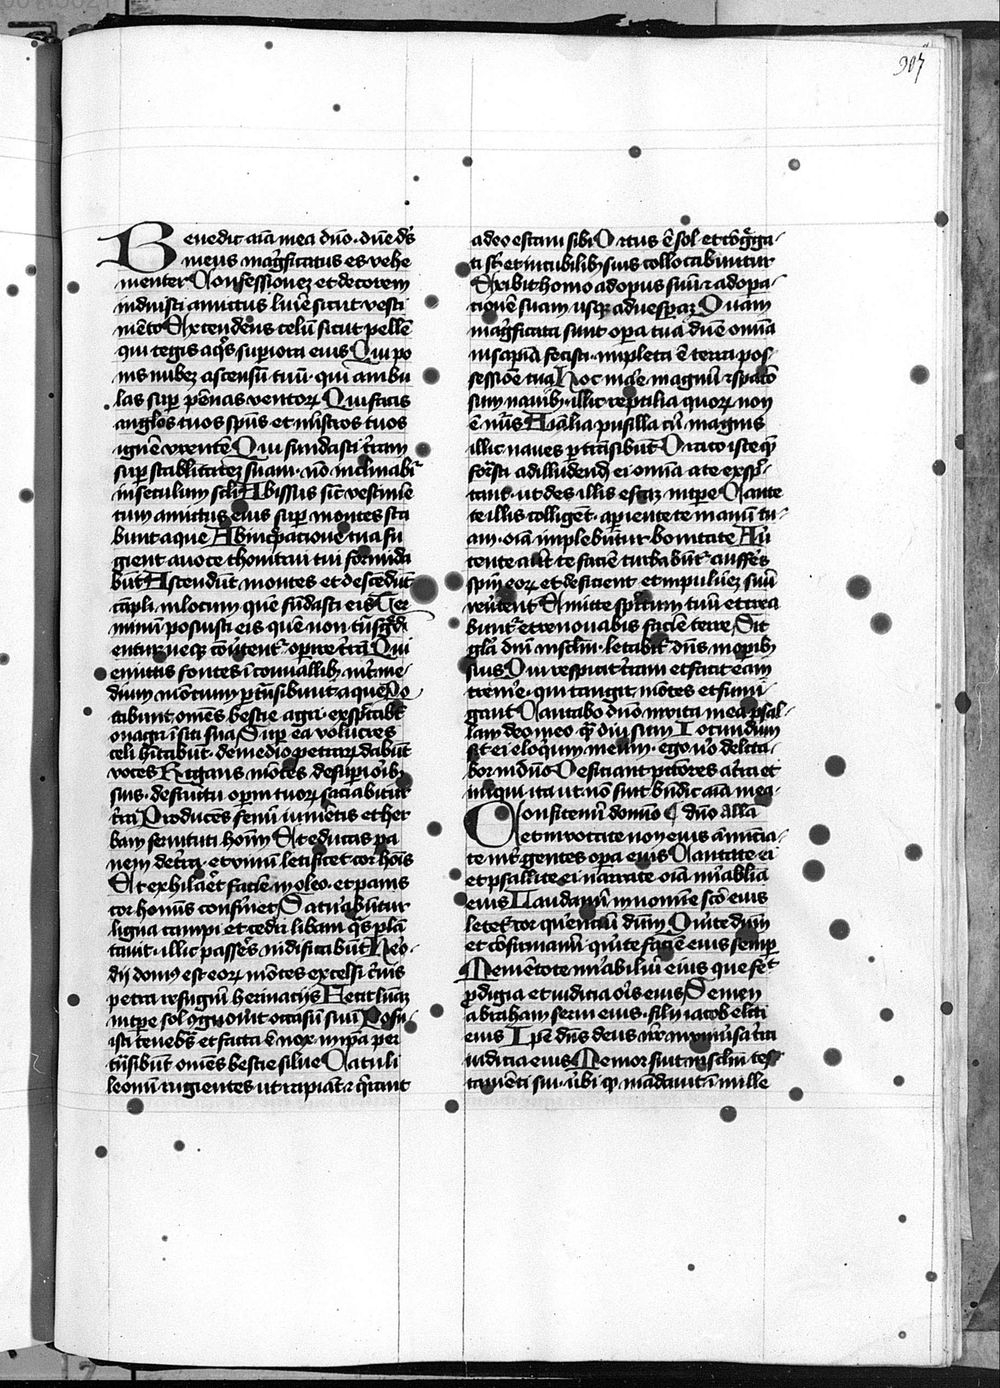 907
Benedic aīa mea dn̄o · dn̄e ds̄
meus mag̅ficatus es vehe
menter Confessionez et decorem
induisti amictus lumīe sicut vesti
mēto Extendens celū sicut pellē
qui tegis aq̄s supiora eius Qui po
nis nubez ascensū tuū · qui ambu
las sup pēnas ventorꝝ Qui facis
angl̄os tuos spūs et mīstros tuos
ignē vrentē Qui fundasti t̄ram
sup stabilitatez suam · nō inclinabit᷑
in seculum scl̄i Abissus sic̄ vestimē
tum amictus eius sup montes sta
bunt aque Ab increpacione tua fu
gient a voce thonitrui tui formida
būt Ascendūt montes et descedūt
campi in locum quē fūdasti eis Ter
minū posuisti eis quē non tn̄sg̅di
entur neqꝫ cōūtent᷑ opire t̄rā Qui
emittis fontes ī conuallibꝫ int̄ me
dium mōtium ptn̄sibunt aque Po
tabunt omēs bestie agri · exspc̄tabūt
onagri ī siti sua Sup ea volucres
celi hītabūt · de medio petrarꝝ dabūt
voces Rigans mōtes de supioribꝫ
suis · de fructu opm tuorꝫ saciabitur
t̄ra Producens fenū iumētis et her
bam seruituti hoīm Et educas pa
nem de t̄ra · et vinū letificet cor hoīs
Et exhilaret faciē in oleo · et panis
cor hominis confirmet Saturabūtur
ligna campi et cedri libani q̄s plā
tauit · illic passeres nidificabūt Heꝛo
dij domꝰ est eorꝫ mōtes excelsi c̄uis
petra refugiū herinacijs Fecit lunaꝫ
in tpe sol ꝯgnouit occasū suū Posu
isti tenebras et facta ē nox in ip̄a per
tn̄sibūt omēs bestie silue Catuli
leonū rugientes ut rapiāt ⁊ q̄rant
a deo escam sibi Ortus ē sol et cōg̅ga
ti sūt et in cubilibꝫ suis collocabuntur
Exibit homo ad opus suū ⁊ ad opa
cionē suam usqꝫ ad vespaꝫ Quam
mag̅ficata sunt opa tua dn̄e omīa
in sapiā fecisti · impleta ē terra pos
sessiōe tua Hoc maꝛe magnū ⁊ spacio
sum manibꝫ · illic reptilia quorꝫ non
ē nūs Aīalia pusilla cū magnis
illic naues ptrāsibūt Draco iste quē
formasti ad illudendū ei omīa a te exspc̄
tant · ut des illis escaꝫ in tpe Dante
te illis colligēt · apiente te manū tu
am · oīa implebūtur bonitate Auer
tente aūt te faciē turbabūt᷑ auffeꝛs
spm̄ eorꝫ et deficient et in puluerez suū
reūtent᷑ Emitte spiritum tuū et crea
bunt᷑ et renouabis faciē terre Sit
gl̄a dnī in scl̄m · letabit᷑ dn̄s in opibꝫ
suis Qui respicit t̄ram et facit eam
tremere · qui tangit mōtes et fumi
gant Cantabo dn̄o in vita mea psal
lam deo meo q̄ diu sum Iocundum
sit ei eloquiū meum · ego v̄o delecta
bor in dn̄o Deficiant pctores a t̄ra et
iniqui ita ut nō sint bn̄dic aīa mea
Confitemī domīo ¶ dn̄o allā
et invocate nomen eius annūcia
te int̄ gentes opa eius Cantate ei
et psallite ei narrate oīa mirabilia
eius Laudamī in nomīe scō eius
letet᷑ cor querenciū dn̄m Querite dn̄m
et cōfirmamī · querite faciē eius semp
Memētote mirabiliū eius que fecit
ꝓdigia et iudicia oris eius Semen
abraham serui eius · filij iacob electi
eius Ipe dn̄s deus nr̄ in vniūsa t̄ra
iudicia eius Memor fuit in scl̄m tes
tamēti sui · ūbi qꝫ mādauit ī mille